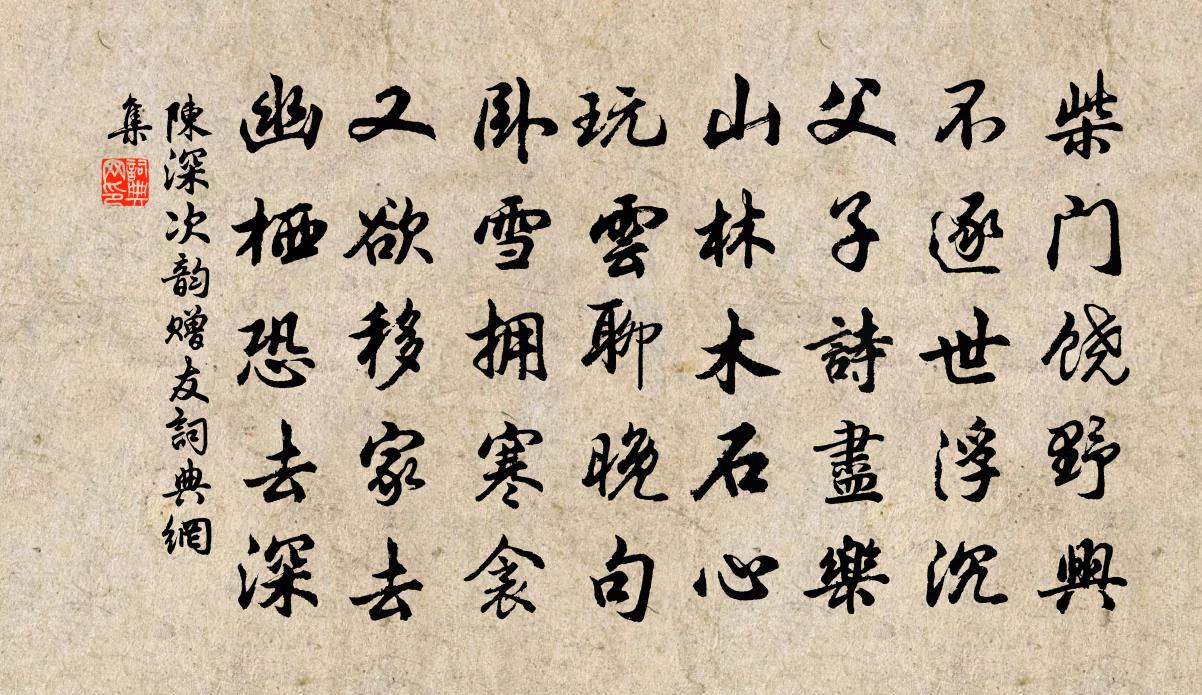 柴门饶野興
不逐世浮沉
父子詩盡樂
山林木石心
玩雲聊晚句
卧雪拥寒衾
又欲移家去
幽栖恐去深
陳深次韵赠友詞典網
集
詞典网印